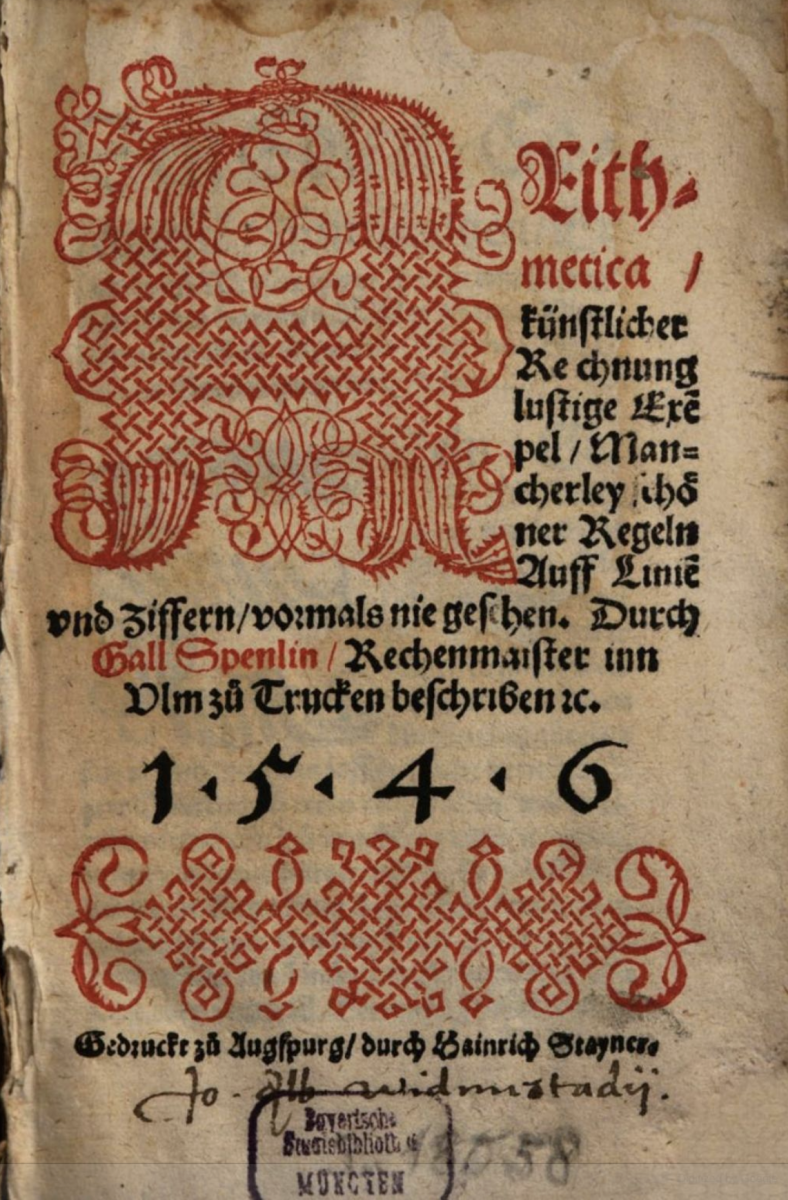 ARith-
metica /
künstlicher
Re chnung
lustige Exẽ
pel / Man=
cherley schö
ner Regeln
Auff Liniẽ
vnd Ziffern/vormals nie gesehen. Durch
Gall Spenlin / Rechenmaister inn
Vlm zů Trucken beschriben ꝛc.
1 · 5 · 4 · 6
Gedruckt zů Augspurg/ durch Hainrich Stayner.
Jo. Alb. Widmestadij.
Bayerische
Staatsbibliothek
MÜNCHEN